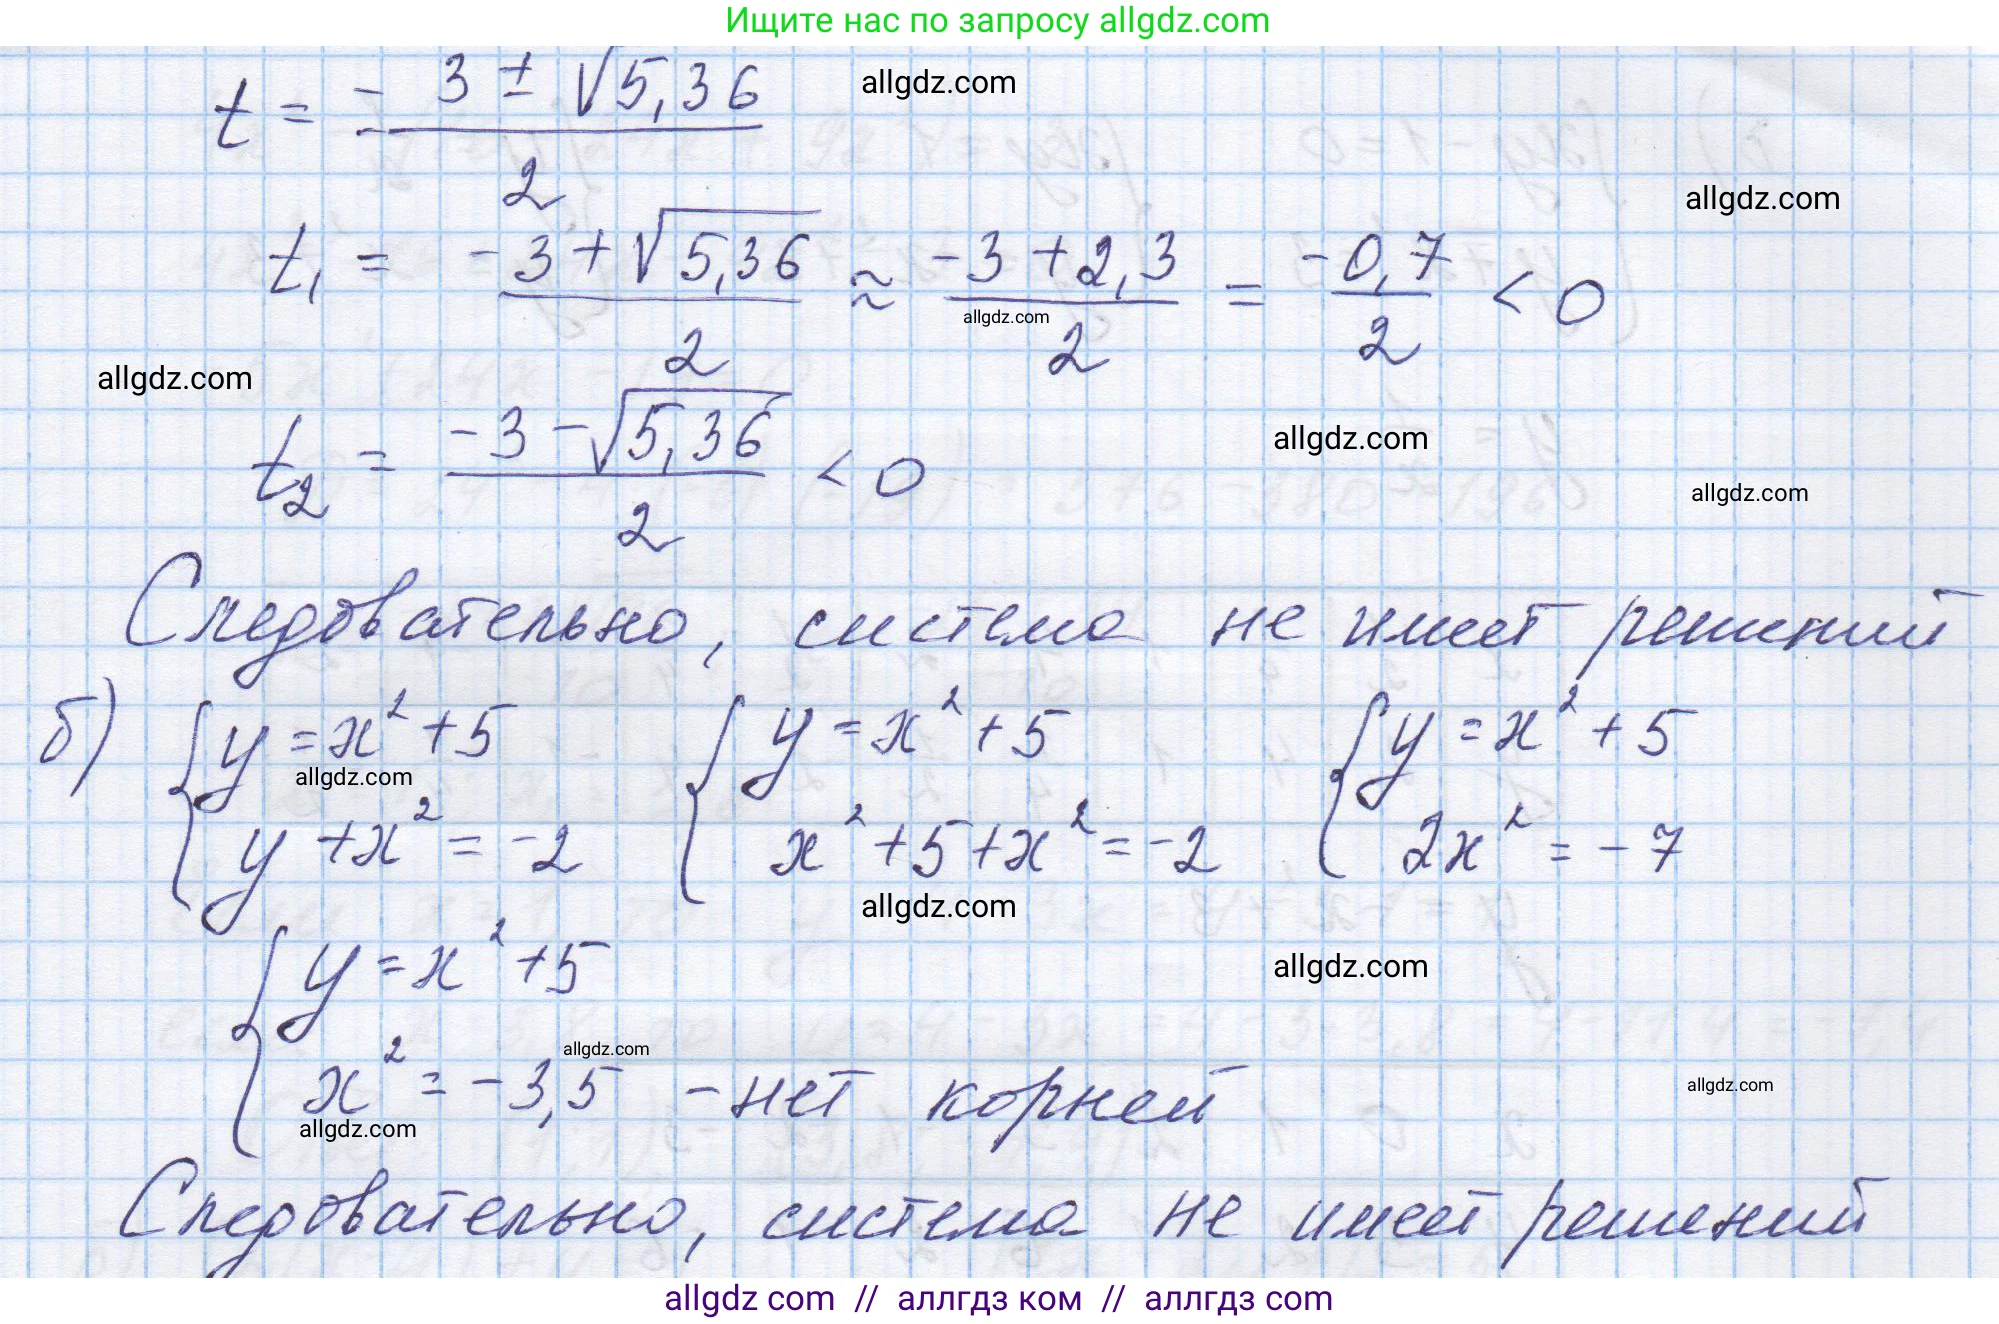 Ищите нас по запросу allgdz.com
t = - 3 ± √5,36 / 2
allgdz.com
allgdz.com
t₁ = -3 + √5,36 / 2 ≈ -3 + 2,3 / 2 = -0,7 / 2 < 0
allgdz.com
allgdz.com
t₂ = -3 - √5,36 / 2 < 0
allgdz.com
allgdz.com
Следовательно, система не имеет решений
б) { y = x² + 5 { y = x² + 5 { y = x² + 5
allgdz.com
y + x² = -2 x² + 5 + x² = -2 2x² = -7
allgdz.com
{ y = x² + 5
allgdz.com
allgdz.com
x² = -3,5 - нет корней
allgdz.com
allgdz.com
Следовательно, система не имеет решений
allgdz com // аллгдз ком // аллгдз com